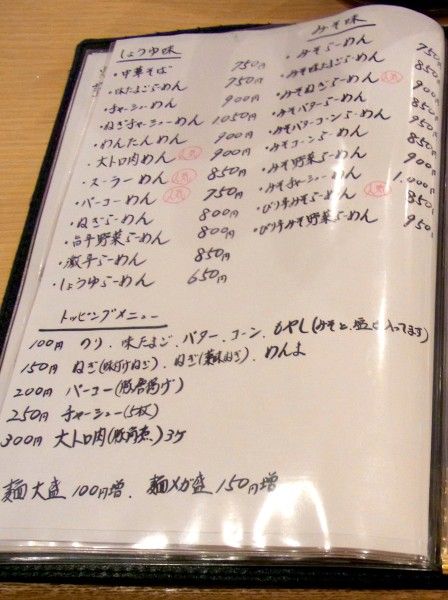 しょうゆ味
・中華そば 750円
・味たまごらーめん 750円
・チャーシューめん 900円
・ねぎチャーシューめん 1050円
・わんたんめん 900円
・大トロ肉めん 人気 900円
・スーラーめん 人気 850円
・パーコーめん 人気 750円
・ねぎらーめん 800円
・旨辛野菜らーめん 800円
・激辛らーめん 850円
・しょうゆらーめん 650円
みそ味
・みそらーめん 750
・みそ味たまごらーめん 850
・みそねぎらーめん 人気 900
・みそバターらーめん 850
・みそバターコーンらーめん 950
・みそコーンらーめん 850
・みそ野菜らーめん 900
・みそチャーシューめん 1.000
・ぴり辛みそらーめん 人気 850
・ぴり辛みそ野菜らーめん 950
トッピングメニュー
100円 のり、味たまご、バター、コーン、もやし(みそと、塩に入ってます)
150円 ねぎ(味付けねぎ)、ねぎ(薬味ねぎ)、めんま
200円 パーコー(豚唐揚げ)
250円 チャーシュー(5枚)
300円 大トロ肉(豚角煮)3ケ
麺大盛100円増、麺メガ盛150円増